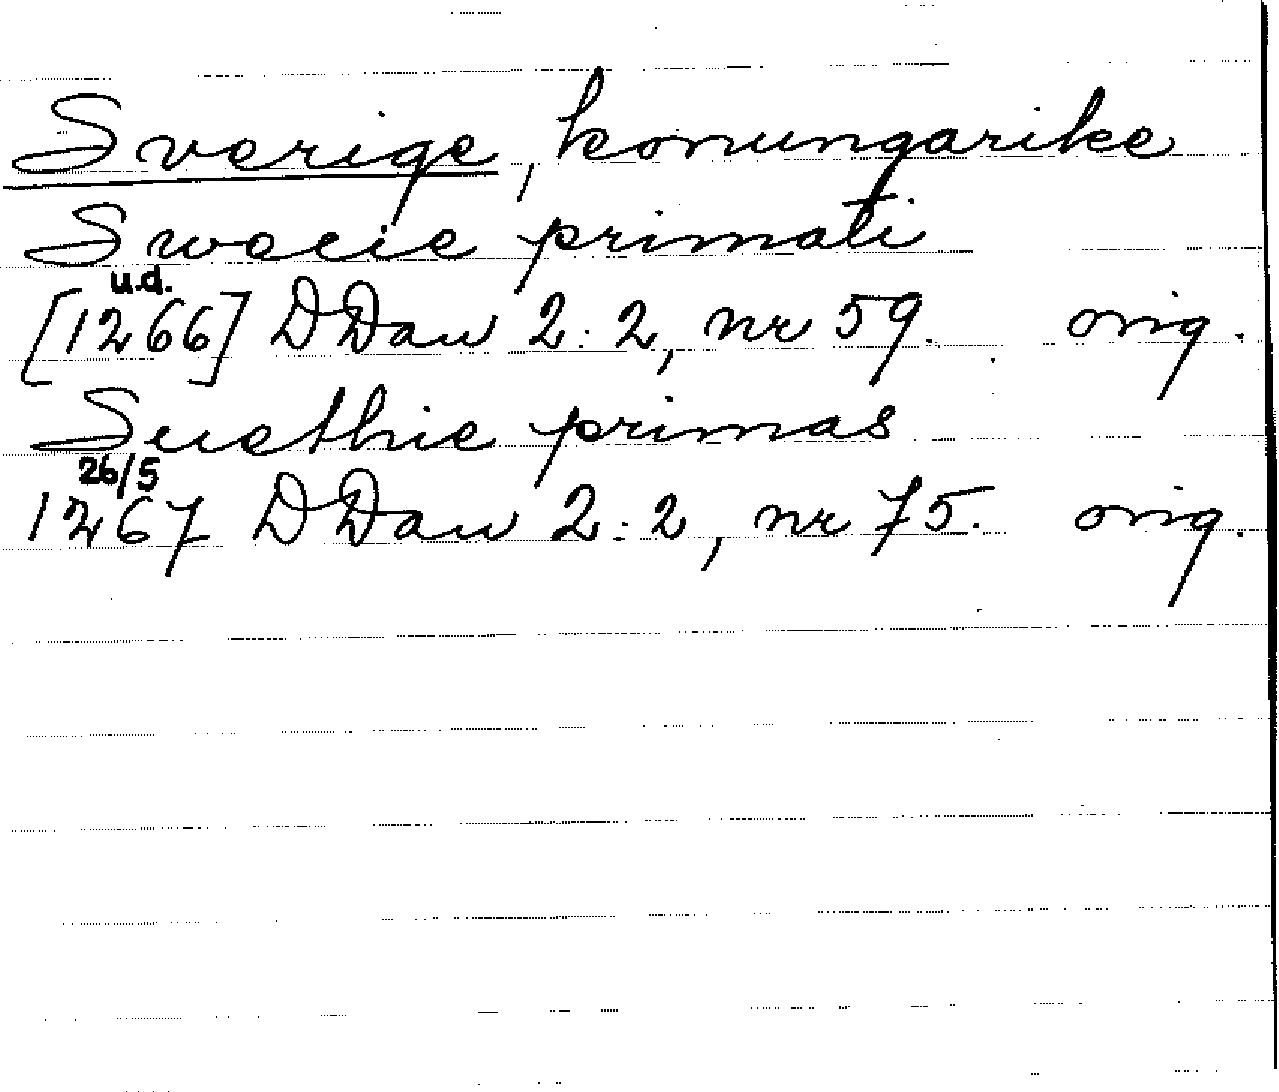 Sverige, konungarike
Swecie primati
u.d.
[1266] DDan 2:2, nr 59. orig.
Suethie primas
26/5
1267 DDan 2:2, nr 75. orig.